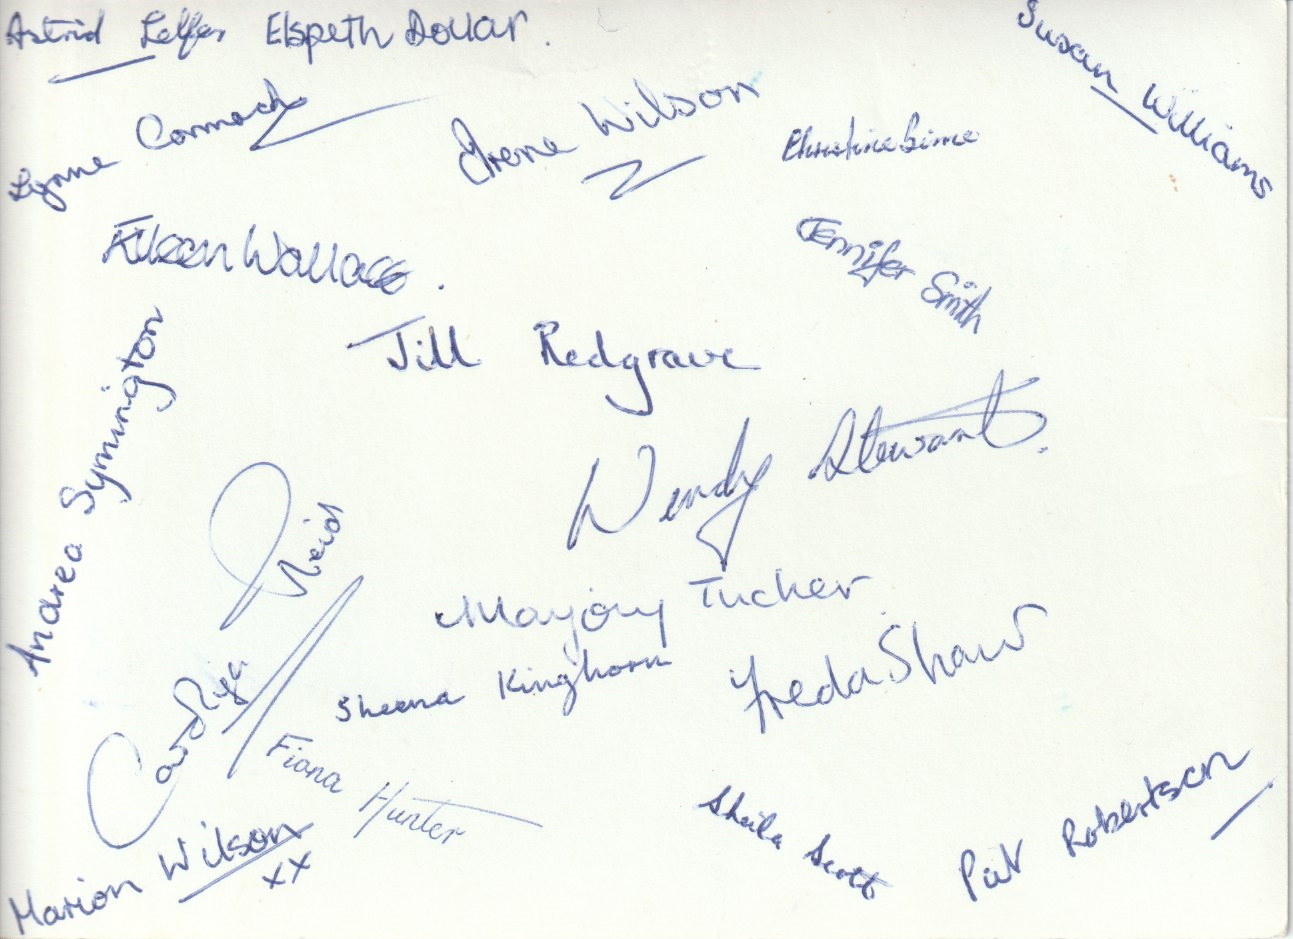 Astrid Telfer Elspeth Dollar.
Susan Williams
Lynne Cormack
Irene Wilson
Christine Birne
Eileen Wallace.
Jennifer Smith
Jill Redgrave
Andrea Symington
Wendy Stewart.
Reid
Marjory Tucker
Sheena Kinghorn
Freda Shaw
Fiona Hunter
Marion Wilson
xx
Sheila Scott
Pat Robertson